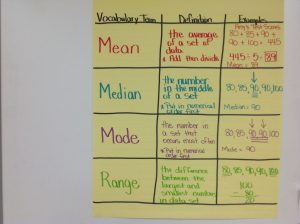 Vocabulary Term Definition Example
Mean
the average
of a set of
data
* Add then divide
Amy's Test Scores
80 + 85 + 90 +
90 + 100 = 445
445 ÷ 5 = 89
Mean = 89
Median
the number
in the middle
of a set
* Put in numerical
order first
80, 85, 90, 90, 100
Median = 90
Mode
the number in
a set that
occurs most often
* Put in numerical
order first
80, 85, 90, 90, 100
Mode = 90
Range
the difference
between the
largest and
smallest number
in data set
80, 85, 90, 90, 100
100
- 80
20